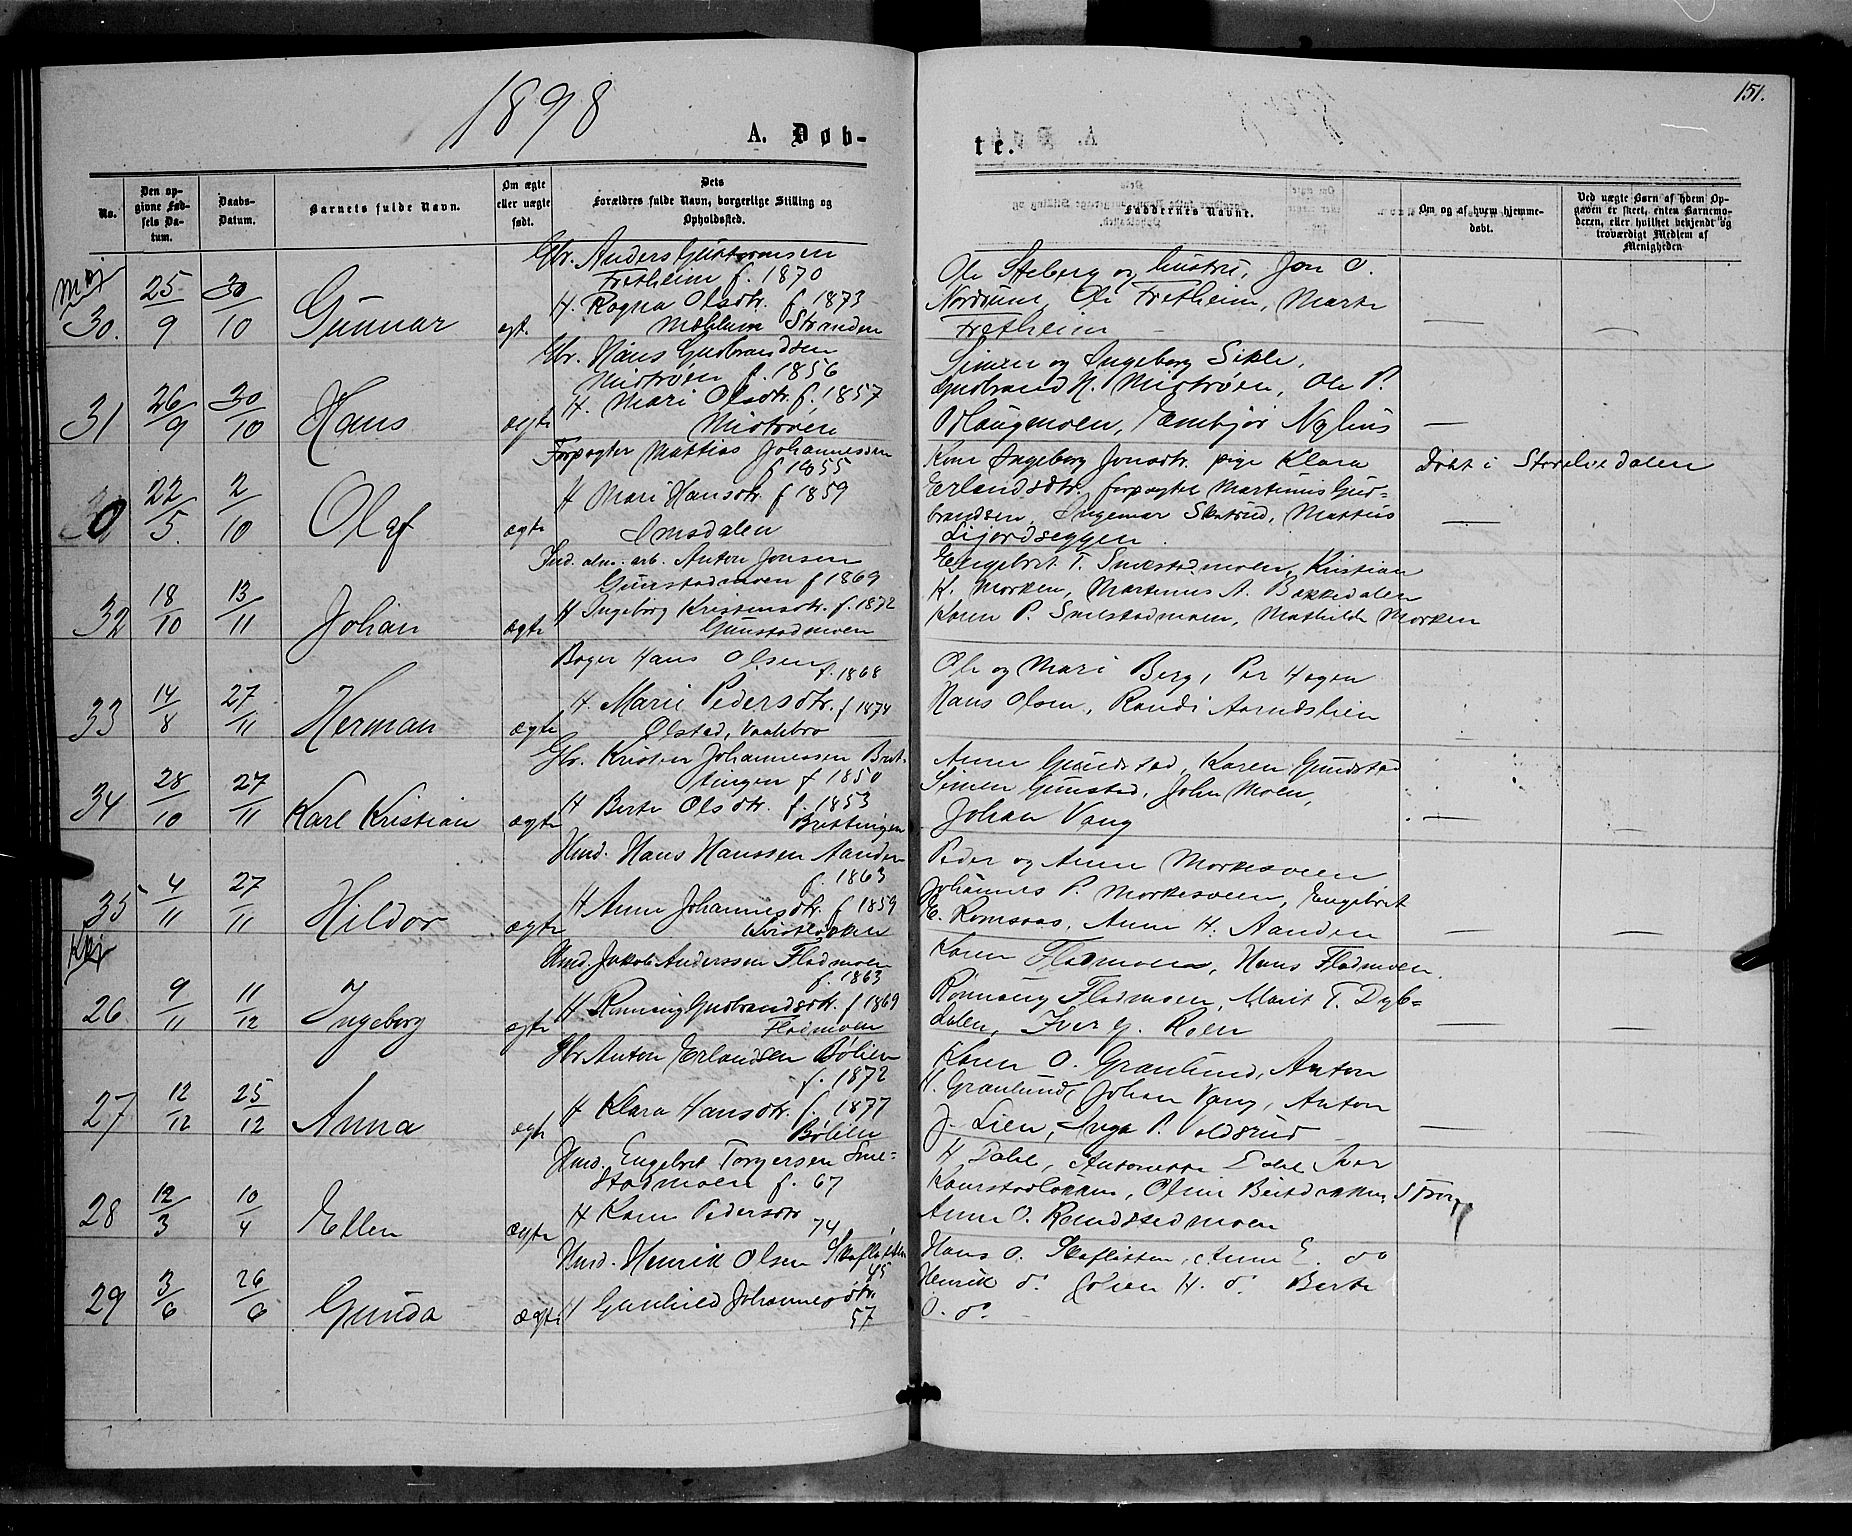 1898
151.
A. Døb-
te.
No.
Den op-
givne Fød-
sels Da-
tum.
Daabs-
Datum.
Barnets fulde Navn.
Om ægte
eller uægte
født.
Dets
Forældres fulde Navn, borgerlige Stilling og
Opholdssted.
Faddernes Navne.
Om og af hvem hjemme-
døbt.
Ved uægte Børn af hvem Op-
gaven er skeet, enten Barnemo-
deren, eller hvilket bekjendt og
troværdigt Medlem af
Menigheden
30. 25/9 30/10 Gunnar egt.
Gbr. Anders
Fretheim f. 1870
H. Ragna Olsdtr. f. 1873
Mæhlum Stranden
Ole Steberg og hustru, Jon O.
Nordrum, Ole Fretheim, Marte
Fretheim
31 26/9 30/10 Hans ægte
Gbr. Hans Gudbrandsen
Mistroen f. 1856
H. Mari Olsdtr. f. 1857
Mistroen
Simen og Ingeborg Sikle,
Gudbrand H. Mistroen, Ole P.
Haugmoen, Nyhus
0 22/5. 2/10 Olaf ægte
Forpagter Mattias Johannesen
f 1855
H Mari Hansdtr. f 1859
Imsdalen
Kone Ingeborg Jonsdtr. pige Klara
Erlandsdtr. forpagter Martinus Gud-
brandsen, Ingemar Skutrud, Mattias
Lijordseggen.
Døbt i Storelvedalen
32 18/10 13/11 Johan ægte
Ind. alm. arb. Anton Jonsen
Gunstadmoen f 1869
H Ingeborg Kristensdtr. f. 1872
Gunstadmoen
Engebret T. Smestadmoen, Kristian
K. Morken, Martinus A. Bakkedalen
Karen P. Smestadmoen, Mathilde Morken
33 14/8 27/11 Herman ægte
Bager Hans Olsen
f. 1868
H. Marie Pedersdtr. f 1874
Olstad, Vaalebro
Ole og Mari Berg, Per Hagen
Hans Olsen, Randi Aarndslien
34 28/10 27/11 Karl Kristian ægte
Gbr. Kristen Johannessen Brit-
tingen f 1850
H Berte Olsdtr. f. 1853
Brittingen
Anne Gunstad, Karen Gunstad
Simen Gunstad, John Moen,
Johan Vang
35 4/11 27/11 Hildor ægte
Hmd. Hans Hanssen Aanden
f. 1863
H Anne Johannesdtr. f 1859
Peder og Anne Morkesveen
Johannes P. Morkesveen, Engebret
E. Romsaas, Anne H. Aanden
26 9/11 11/12 Ingeborg egte
Hmd. Jakob Anderssen Fladmoen
f. 1863
H Rønnaug Gudbrandsdtr. f 1869
Fladmoen
Karen Fladmoen, Hans Fladmoen.
Rønnaug Fladmoen, Marit T. Dyb-
dalen, Iver G. Roen
27 12/12 25/12 Anna egte
Gbr Anton Erlandsen Bølien
f. 1872
H Klara Hansdtr. f. 1877
Bølien
Karen O. Granlund, Anton
H. Granlund, Johan Vang, Anton
J. Lien, Inga P. Voldsrud
28 12/3 10/4 Ellen ægte
Hmd. Engebret Torgersen Sme-
stadmoen f. 67
H Karen Pedersdtr
74
H Dahl, Antonette Dahl Iver
Anne O. Rundstedmoen
29 3/6 26/6 Gunda ægte
Hmd. Henrik Olsen Skaflotten
45
H Gunhild Johannesdtr.
57
Hans O. Skaflotten, Anne E. do
Henrik do. H. do. Berte
O. do.